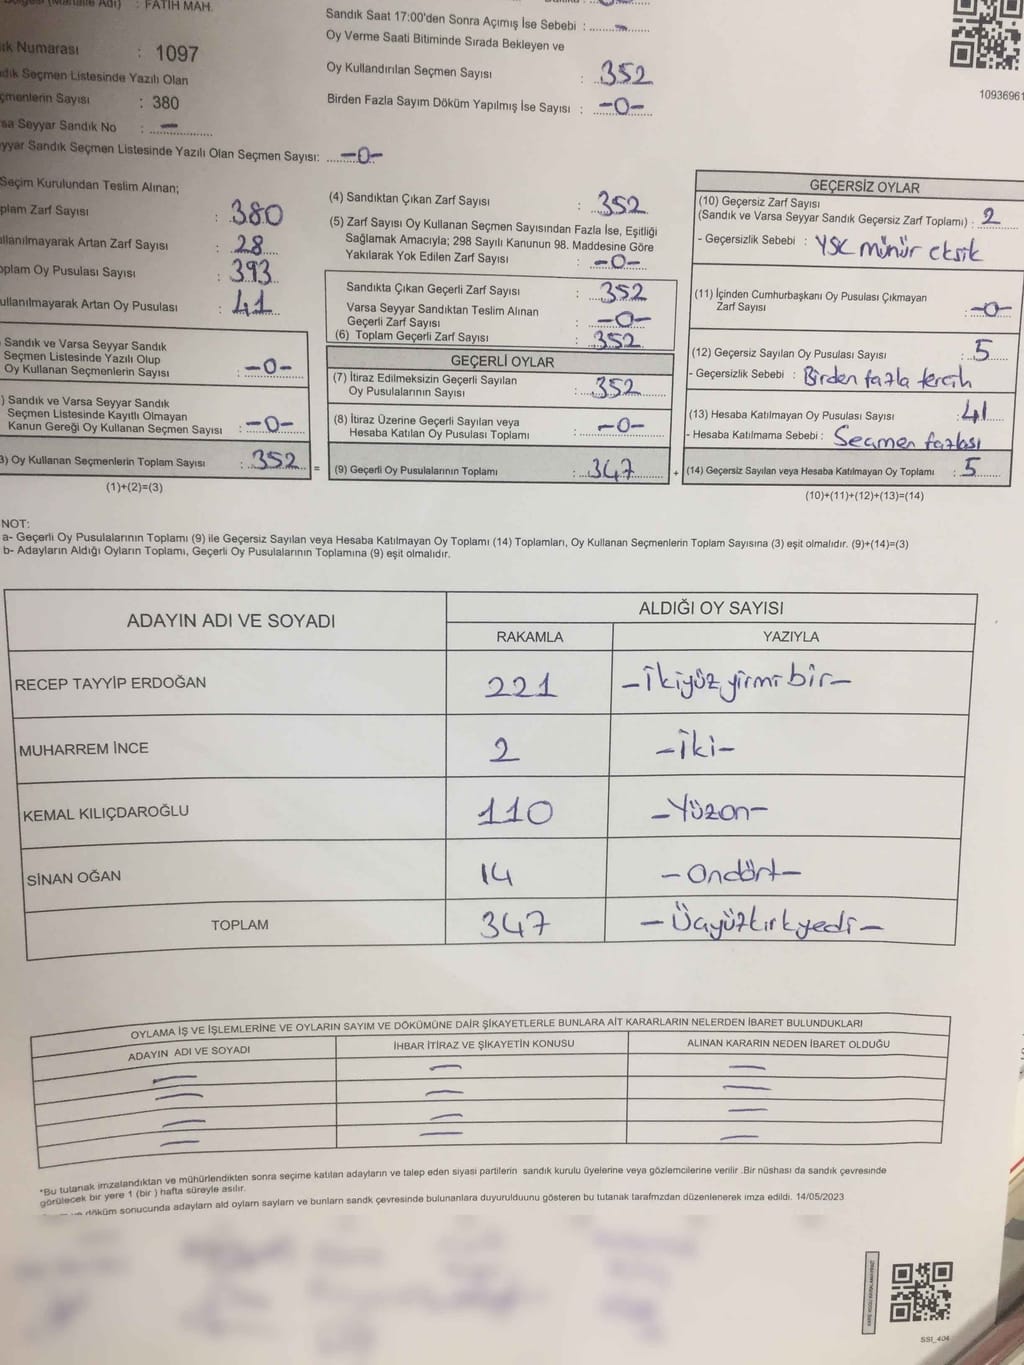 : FATİH MAH.
Sandık Saat 17:00'den Sonra Açımış İse Sebebi : —
Oy Verme Saati Bitiminde Sırada Bekleyen ve
Oy Kullandırılan Seçmen Sayısı : 352
Birden Fazla Sayım Döküm Yapılmış İse Sayısı : -0-
10936961
Numarası : 1097
Seçmen Listesinde Yazılı Olan
Sayısı : 380
Seyyar Sandık No : —
Sandık Seçmen Listesinde Yazılı Olan Seçmen Sayısı: -0-
Seçim Kurulundan Teslim Alınan;
Zarf Sayısı : 380
Artan Zarf Sayısı : 28
Oy Pusulası Sayısı : 393
Artan Oy Pusulası : 41
Sandık ve Varsa Seyyar Sandık
Seçmen Listesinde Yazılı Olup
Oy Kullanan Seçmenlerin Sayısı : -0-
) Sandık ve Varsa Seyyar Sandık
Seçmen Listesinde Kayıtlı Olmayan
Kanun Gereği Oy Kullanan Seçmen Sayısı : -0-
3) Oy Kullanan Seçmenlerin Toplam Sayısı : 352 =
(1)+(2)=(3)
(4) Sandıktan Çıkan Zarf Sayısı : 352
(5) Zarf Sayısı Oy Kullanan Seçmen Sayısından Fazla İse, Eşitliği
Sağlamak Amacıyla; 298 Sayılı Kanunun 98. Maddesine Göre
Yakılarak Yok Edilen Zarf Sayısı : -0-
Sandıkta Çıkan Geçerli Zarf Sayısı : 352
Varsa Seyyar Sandıktan Teslim Alınan
Geçerli Zarf Sayısı : -0-
(6) Toplam Geçerli Zarf Sayısı : 352
GEÇERLİ OYLAR
(7) İtiraz Edilmeksizin Geçerli Sayılan
Oy Pusulalarının Sayısı : 352
(8) İtiraz Üzerine Geçerli Sayılan veya
Hesaba Katılan Oy Pusulaları Toplamı : -0-
(9) Geçerli Oy Pusulalarının Toplamı : 347 +
GEÇERSİZ OYLAR
(10) Geçersiz Zarf Sayısı
(Sandık ve Varsa Seyyar Sandık Geçersiz Zarf Toplamı) : 2
- Geçersizlik Sebebi : YSK münür eksik
(11) İçinden Cumhurbaşkanı Oy Pusulası Çıkmayan
Zarf Sayısı : -0-
(12) Geçersiz Sayılan Oy Pusulası Sayısı : 5
- Geçersizlik Sebebi : Birden fazla tercih
(13) Hesaba Katılmayan Oy Pusulası Sayısı : 41
- Hesaba Katılmama Sebebi : Seçmen fazlası
(14) Geçersiz Sayılan veya Hesaba Katılmayan Oy Toplamı : 5
(10)+(11)+(12)+(13)=(14)
NOT:
a- Geçerli Oy Pusulalarının Toplamı (9) ile Geçersiz Sayılan veya Hesaba Katılmayan Oy Toplamı (14) Toplamları, Oy Kullanan Seçmenlerin Toplam Sayısına (3) eşit olmalıdır. (9)+(14)=(3)
b- Adayların Aldığı Oyların Toplamı, Geçerli Oy Pusulalarının Toplamına (9) eşit olmalıdır.
ADAYIN ADI VE SOYADI
ALDIĞI OY SAYISI
RAKAMLA YAZIYLA
RECEP TAYYİP ERDOĞAN 221 -İkiyüzyirmibir-
MUHARREM İNCE 2 -İki-
KEMAL KILIÇDAROĞLU 110 -Yüzon-
SİNAN OĞAN 14 -Ondört-
TOPLAM 347 -Üçyüzkırkyedi-
OYLAMA İŞ VE İŞLEMLERİNE VE OYLARIN SAYIM VE DÖKÜMÜNE DAİR ŞİKAYETLERLE BUNLARA AİT KARARLARIN NELERDEN İBARET BULUNDUKLARI
ADAYIN ADI VE SOYADI İHBAR İTİRAZ VE ŞİKAYETİN KONUSU ALINAN KARARIN NEDEN İBARET OLDUĞU
*Bu tutanak imzalandıktan ve mühürlendikten sonra seçime katılan adayların ve talep eden siyasi partilerin sandık kurulu üyelerine veya gözlemcilerine verilir .Bir nüshası da sandık çevresinde
görülecek bir yere 1 (bir ) hafta süreyle asılır.
döküm sonucunda adaylarn ald oylarn saylarn ve bunlarn sandk çevresinde bulunanlara duyurulduunu gösteren bu tutanak tarafmzdan düzenlenerek imza edildi. 14/05/2023
SSI_404